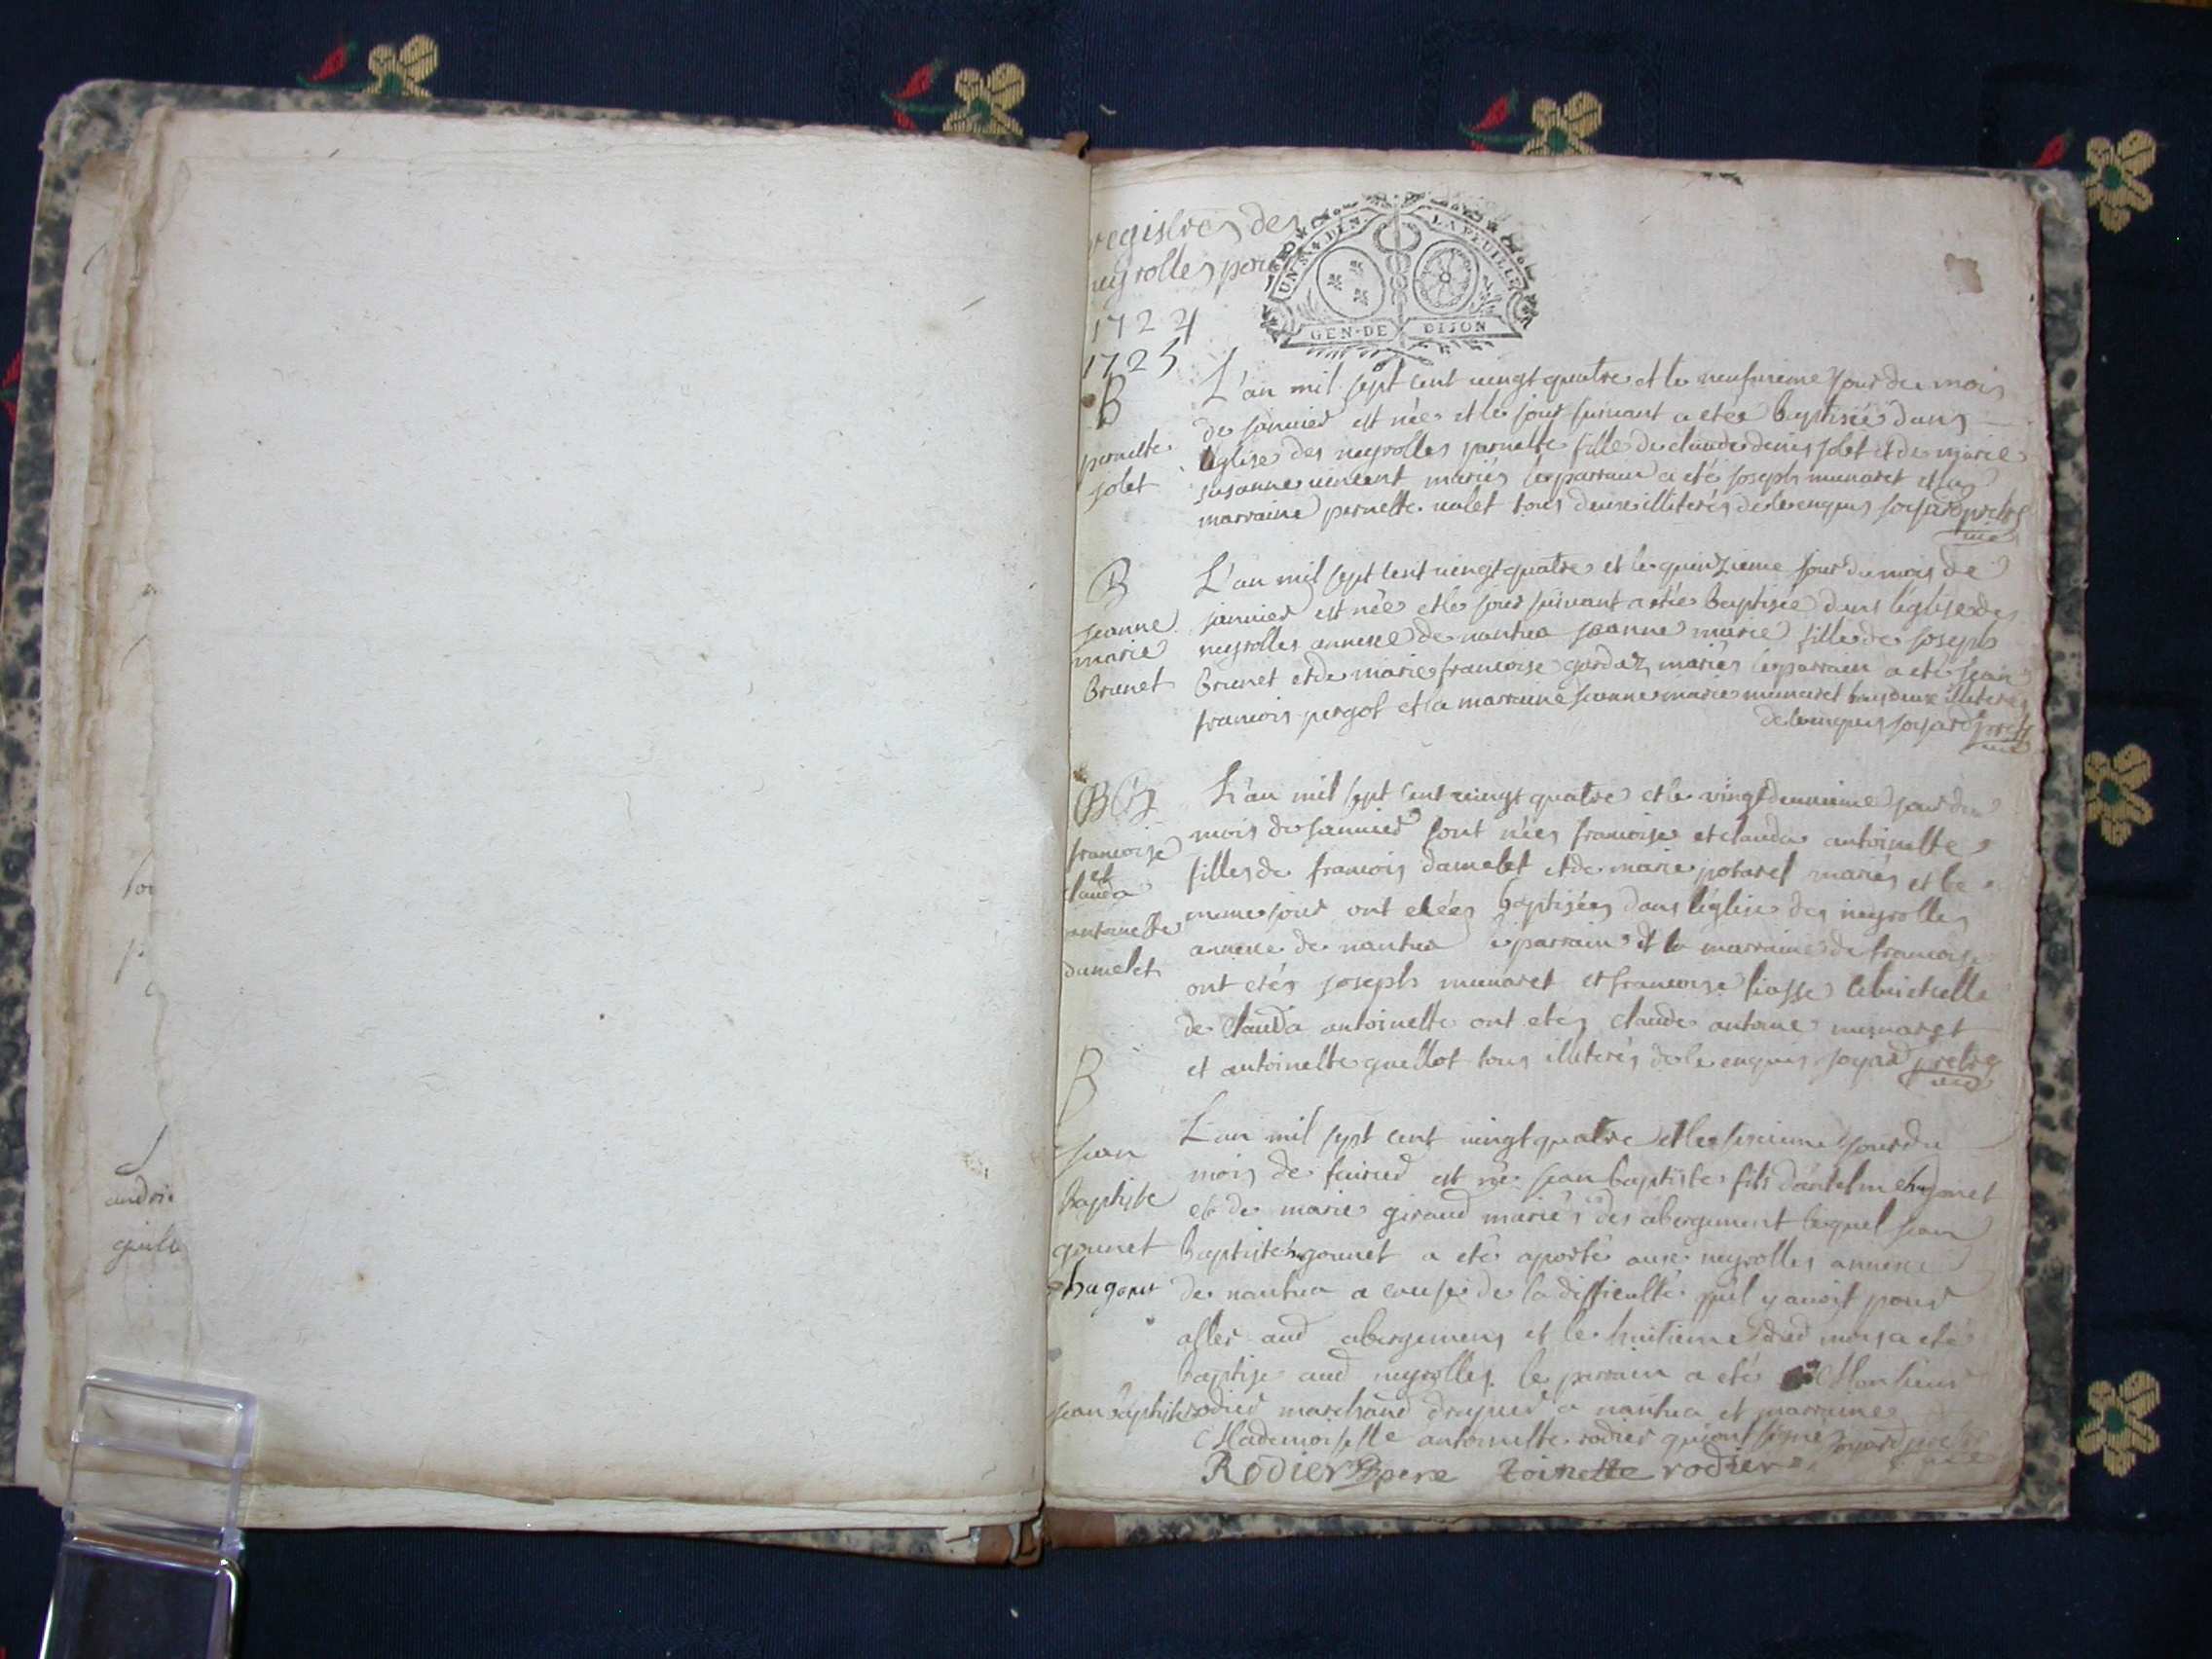 registres des
neyrolles pour
1724
1725
UN S. 4 DEN. LA FEUILLE
GEN. DE DIJON
B
pernette
jolet
L'an mil sept cent vingt quatre et le neufvieme jour du mois
de janvier est née et le jour suivant a etée baptisée dans
léglise des neyrolles pernette fille de claude denis jolet et de marie
susanne vincent mariés le parrain a eté joseph munaret et la
marraine pernette nalet tous deux illiterés de ce enquis joyard pretre
vic
B
jeanne
marie
brunet
L'an mil sept cent vingt quatre et le quinzieme jour du mois de
janvier est née et le jour suivant a etée baptisée dans léglise des
neyrolles annexe de nantua jeanne marie fille de joseph
brunet et de marie francoise gardaz mariés le parrain a eté jean
francois pergot et la marraine jeanne marie munaret tous deux illiterés
de ce enquis joyard pretre
vic
B B
francoise
et
clauda
antoinette
damelet
L'an mil sept cent vingt quatre et le vingt deuxieme jour du
mois de janvier sont nées francoise et clauda antoinette
filles de francois damelet et de marie potaret mariés et le
meme jour ont etées baptisées dans léglise des neyrolles
annexe de nantua le parrain et la marraine de francoise
ont etés joseph munaret et francoise celui et celle
de clauda antoinette ont etés claude antoine munaret
et antoinette guellot tous illiterés de ce enquis joyard pretre
vic
B
jean
baptiste
gonnet
hugonet
L'an mil sept cent vingt quatre et le jour du
mois de fevrier est né jean baptiste fils dantelme hugonet
et de marie giraud mariés des abergement lequel jean
baptiste hugonnet a eté aporté aux neyrolles annexe
de nantua a cause de la difficulté quil y avoit pour
aller aud abergemens et le huitieme dud mois a eté
baptisé aud neyrolles le parrain a eté Monsieur
jean baptiste rodier marchand drapier a nantua et marraine
Mademoiselle antoinette rodier qui ont signé joyard pretre
vic
Rodier pere toinette rodier
andri
guill